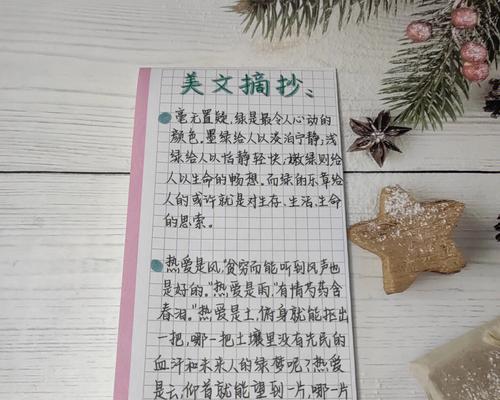 美文摘抄:
毫无置疑,绿是最令人心动的
颜色。墨绿给人以淡泊宁静,浅
绿给人以恬静轻快,嫩绿则给
人以生命的畅想。而绿的乐章给
人的或许就是对生存、生活、生命
的思索。
热爱是风,“贫穷而能听到风声也
是好的。”热爱是雨,“有情芍药含
春泪。”热爱是土,俯身就能拒出
一把,哪一把土壤里没有先民的
血汗和未来人的绿梦呢?热爱
是云,仰首就能望到一片,哪一片